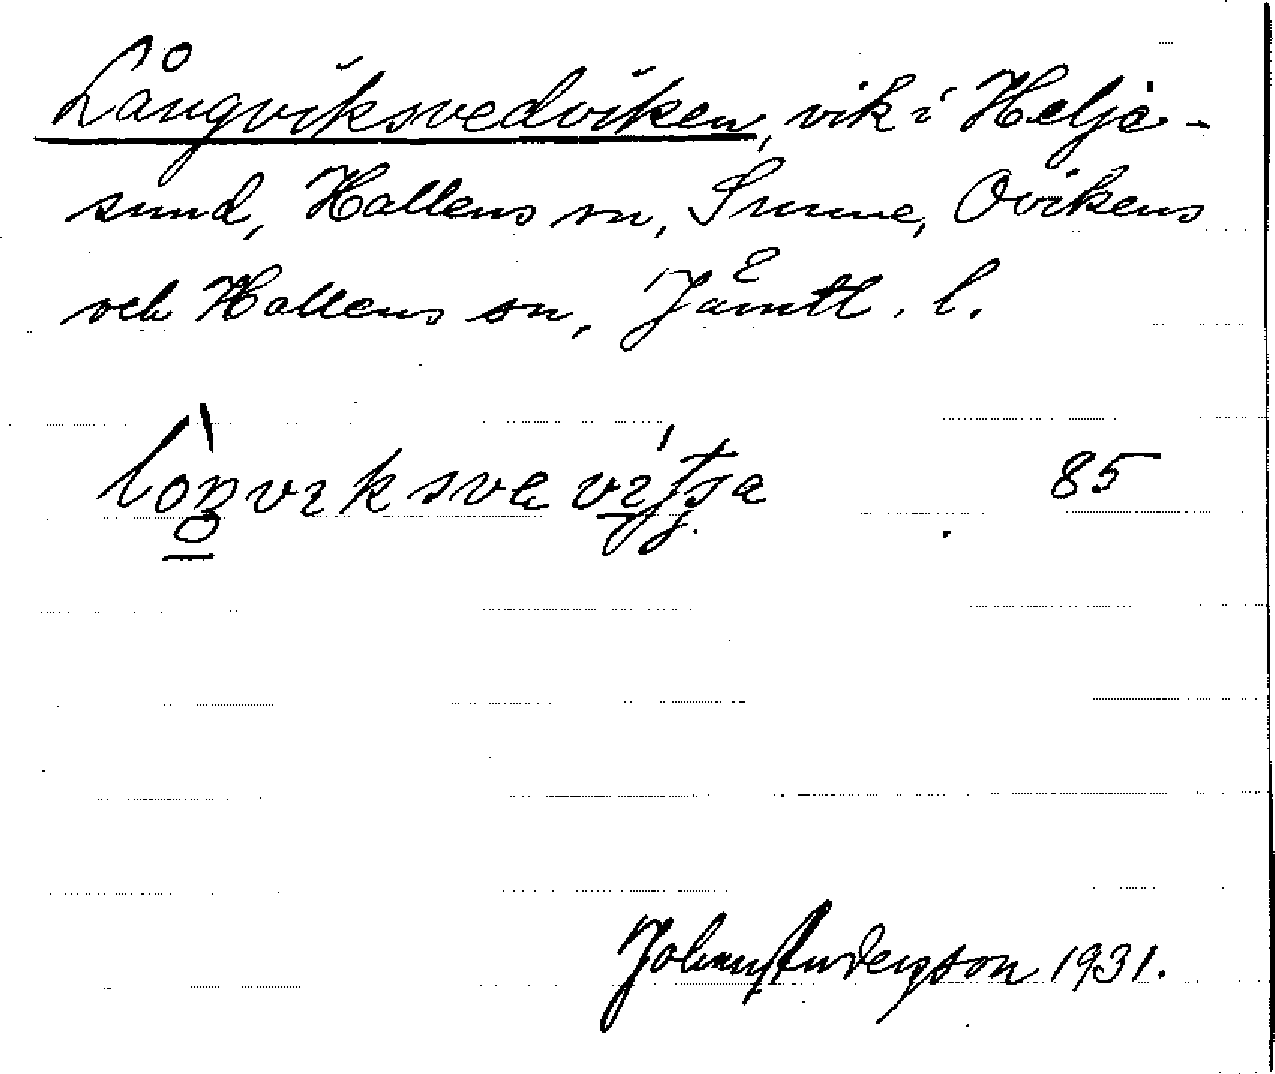 Långviksvedviken, vik i Helje-
sund, Hallens sn, Sunne, Ovikens
och Hallens sn, Jämtl. l.
85
Johan Anderson 1931.